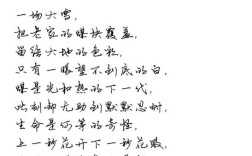 一场大雪，
把老家的煤快覆盖，
留给大地的色彩，
只有一眼望不到底的白，
煤是光和热的下一代，
此刻却无助到默默忍耐，
生命是何等的奇怪，
上一秒花开下一秒花败，